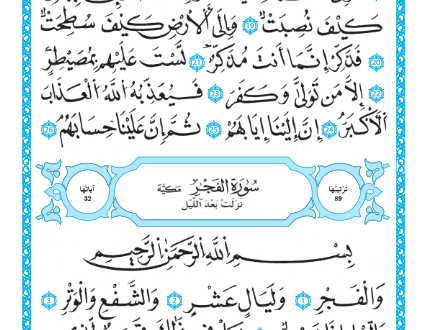 كَيْفَ نُصِبَتْ ١٩ وَإِلَى ٱلْأَرْضِ كَيْفَ سُطِحَتْ
٢٠ فَذَكِّرْ إِنَّمَا أَنتَ مُذَكِّرٌ ٢١ لَّسْتَ عَلَيْهِم بِمُصَيْطِرٍ
٢٢ إِلَّا مَن تَوَلَّىٰ وَكَفَرَ ٢٣ فَيُعَذِّبُهُ ٱللَّهُ ٱلْعَذَابَ
ٱلْأَكْبَرَ ٢٤ إِنَّ إِلَيْنَا إِيَابَهُمْ ٢٥ ثُمَّ إِنَّ عَلَيْنَا حِسَابَهُم ٢٦
ترتيبها 89
سُورَةُ ٱلْفَجْرِ مَكيَّة
نزلت بعد الليل
آياتها 32
بِسْمِ ٱللَّهِ ٱلرَّحْمَٰنِ ٱلرَّحِيمِ
وَٱلْفَجْرِ ١ وَلَيَالٍ عَشْرٍ ٢ وَٱلشَّفْعِ وَٱلْوَتْرِ ٣